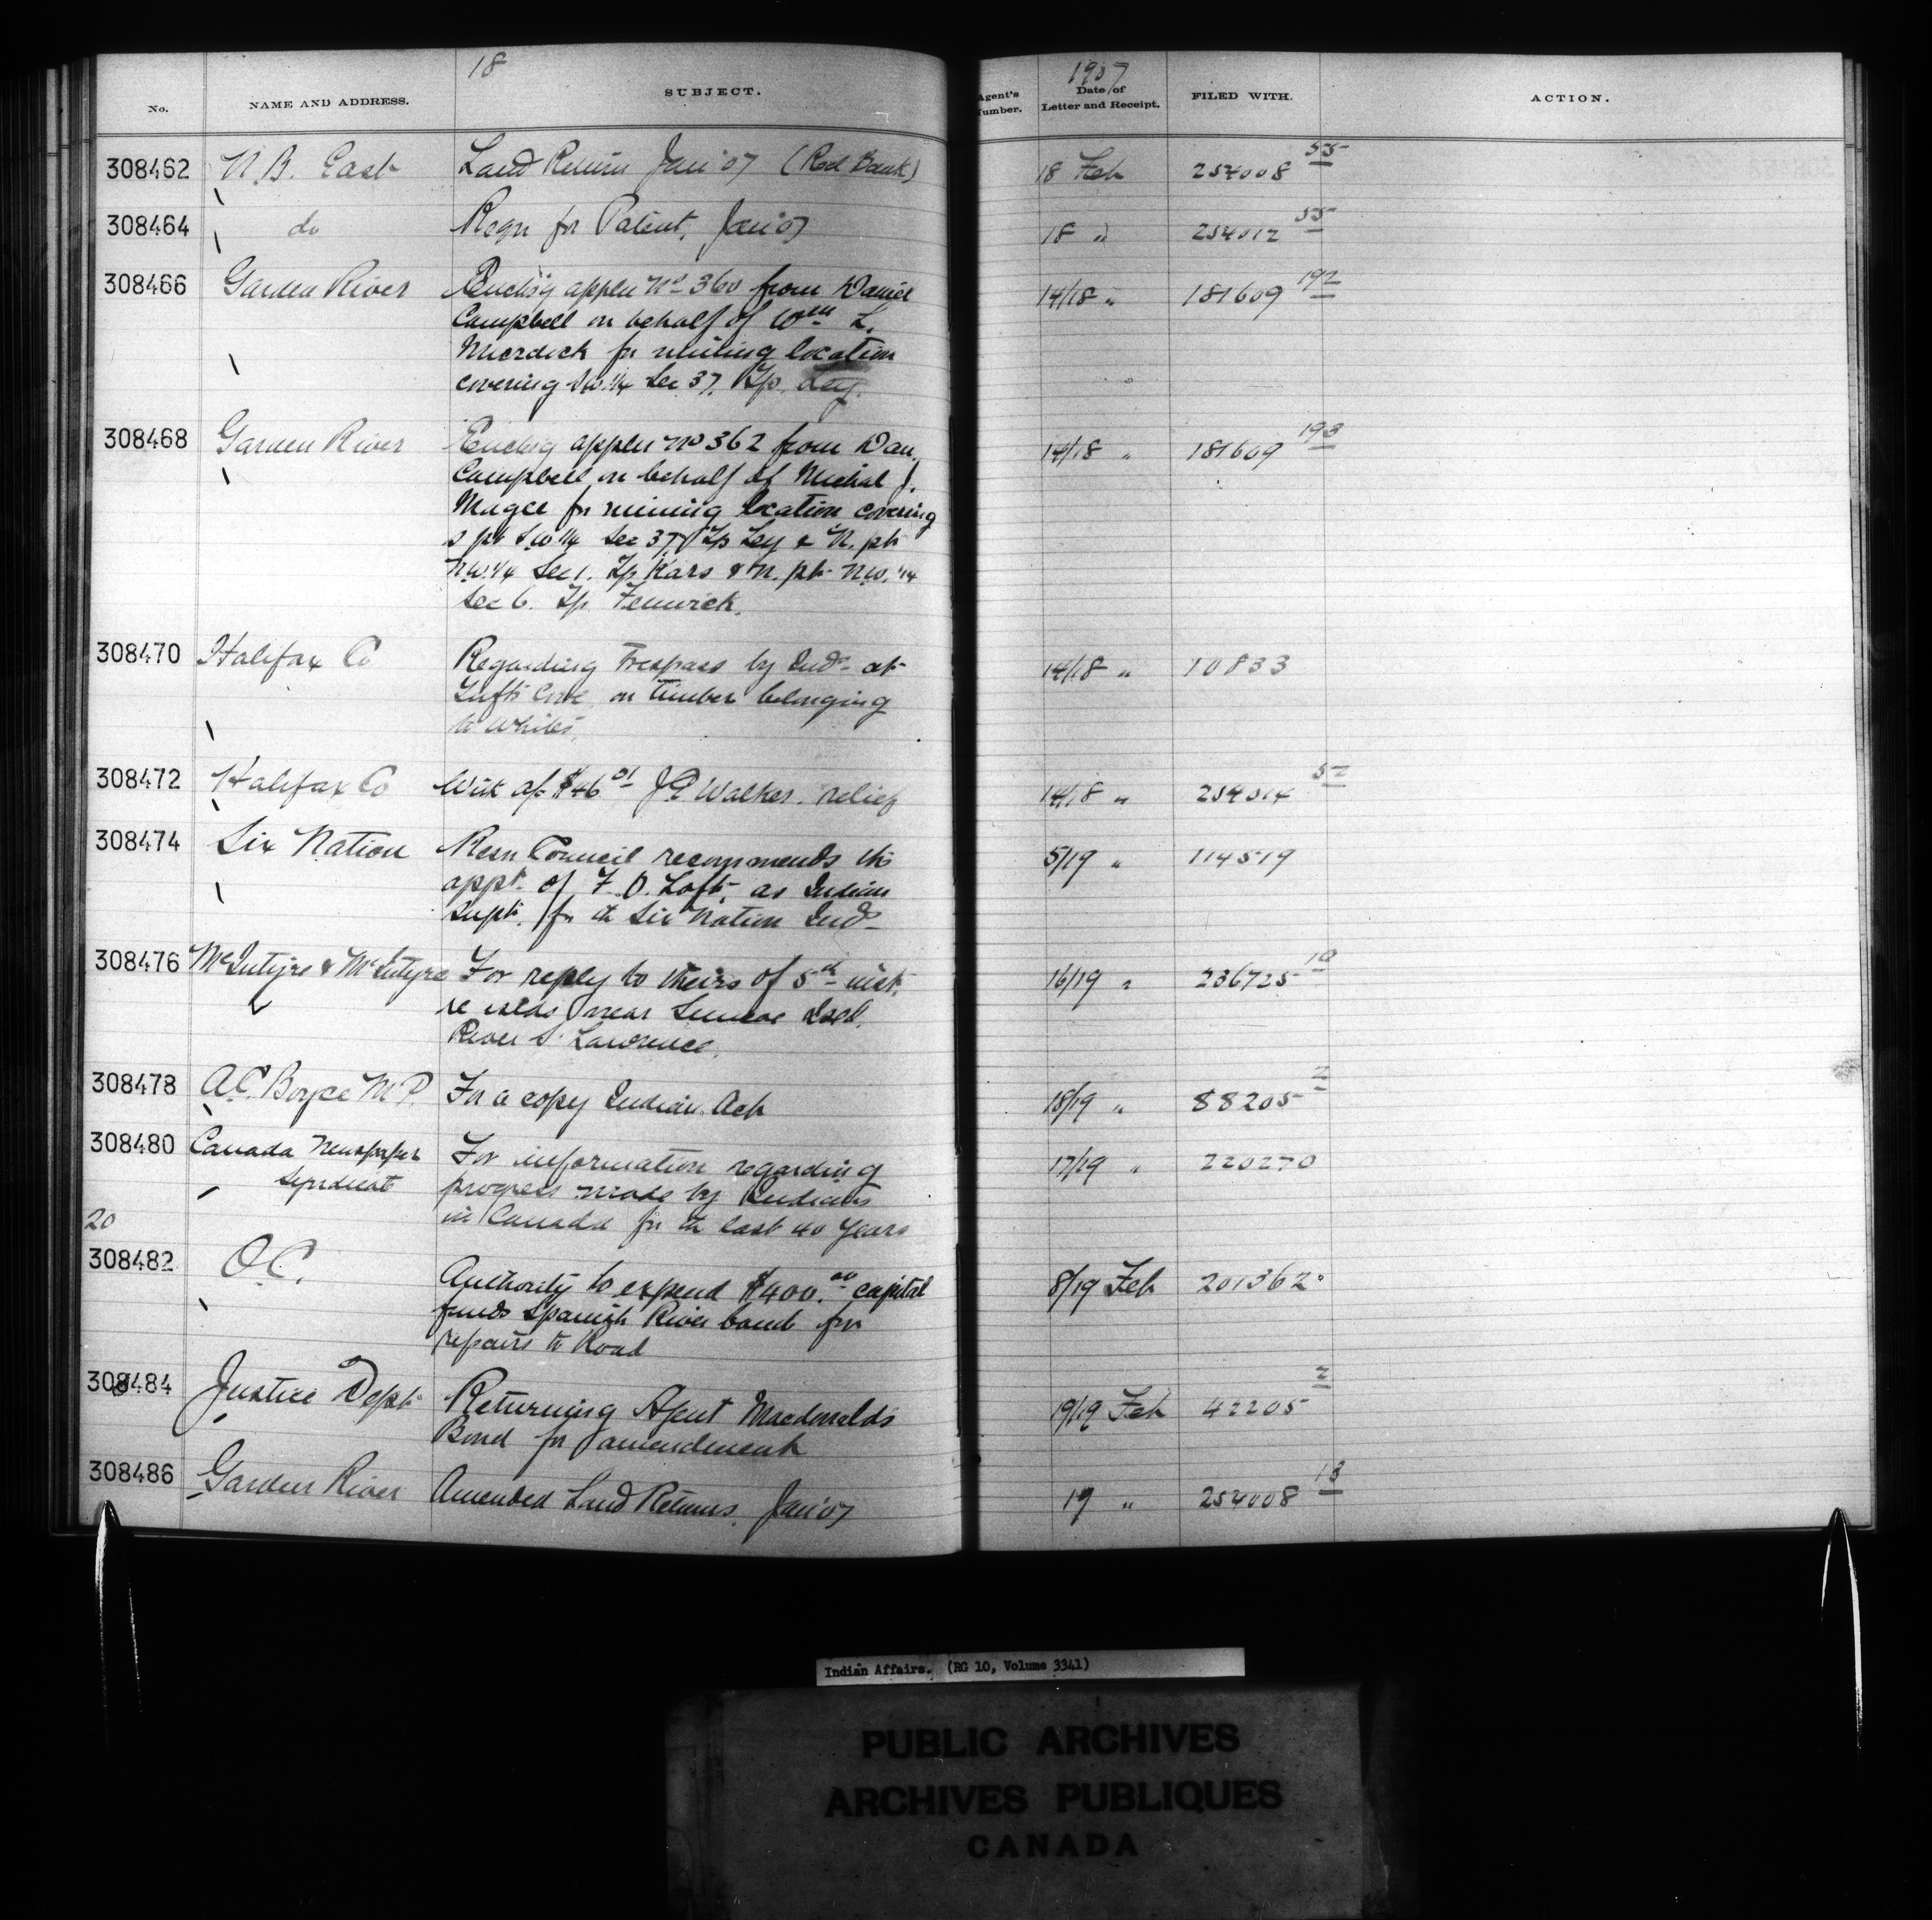 18
1907
No.
NAME AND ADDRESS.
SUBJECT.
Agent's Number.
Date of Letter and Receipt.
FILED WITH.
ACTION.
308462 N.B. East Land Return Jan'07 (Red Bank) 18 Feb 254008 55
308464 do Reqn for Patent, Jan'07 18 " 254012 55
308466 Garden River Enclos'g appln No 360 from Daniel 14/18 " 181609 192
Campbell on behalf of Wm L.
Murdick for mining location
covering SW.1/4 Sec 37. Tp. Ley.
308468 Garden River Enclos'g appln No 362 from Dan. 14/18 " 181609 193
Campbell on behalf of Michal J.
Magee for mining location covering
S pt S.W 1/4 Sec 37 Tp Ley & N. pt
N.W.1/4 Sec 1. Tp Kars & N. pt N.W. 1/4
Sec 6. Tp. Fenwick.
308470 Halifax Co Regarding Trespass by Inds at 14/18 " 10833
Tufts Cove, on timber belonging
to whites.
308472 Halifax Co With a/c $46 01 J.E Walker. relief 14/18 " 254014 52
308474 Six Nation Resn Council recommends the 5/19 " 114519
appt. of F.O. Loft, as Indian
Supt. for the Six Nation Inds
308476 McIntyre & McIntyre For reply to theirs of 5th inst. 16/19 " 236725 10
re islds near Isld.
River St Lawrence.
308478 A.C. Boyce M.P. For a copy Indian Act 18/19 " 88205 2
308480 Canada Newspaper For information regarding 17/19 " 220270
Syndicat progress made by Indians
20 in Canada for the last 40 years
308482 O.C. Authority to expend $400.00 capital 8/19 Feb 201362
funds Spanish River band for
repairs to Road
308484 Justice Dept Returning Agent Macdonald's 19/19 Feb 42205 2
Bond for amendment
308486 Garden River Amended Land Returns. Jan'07 19 " 254008 13
Indian Affairs. (RG 10, Volume 3341)
PUBLIC ARCHIVES
ARCHIVES PUBLIQUES
CANADA